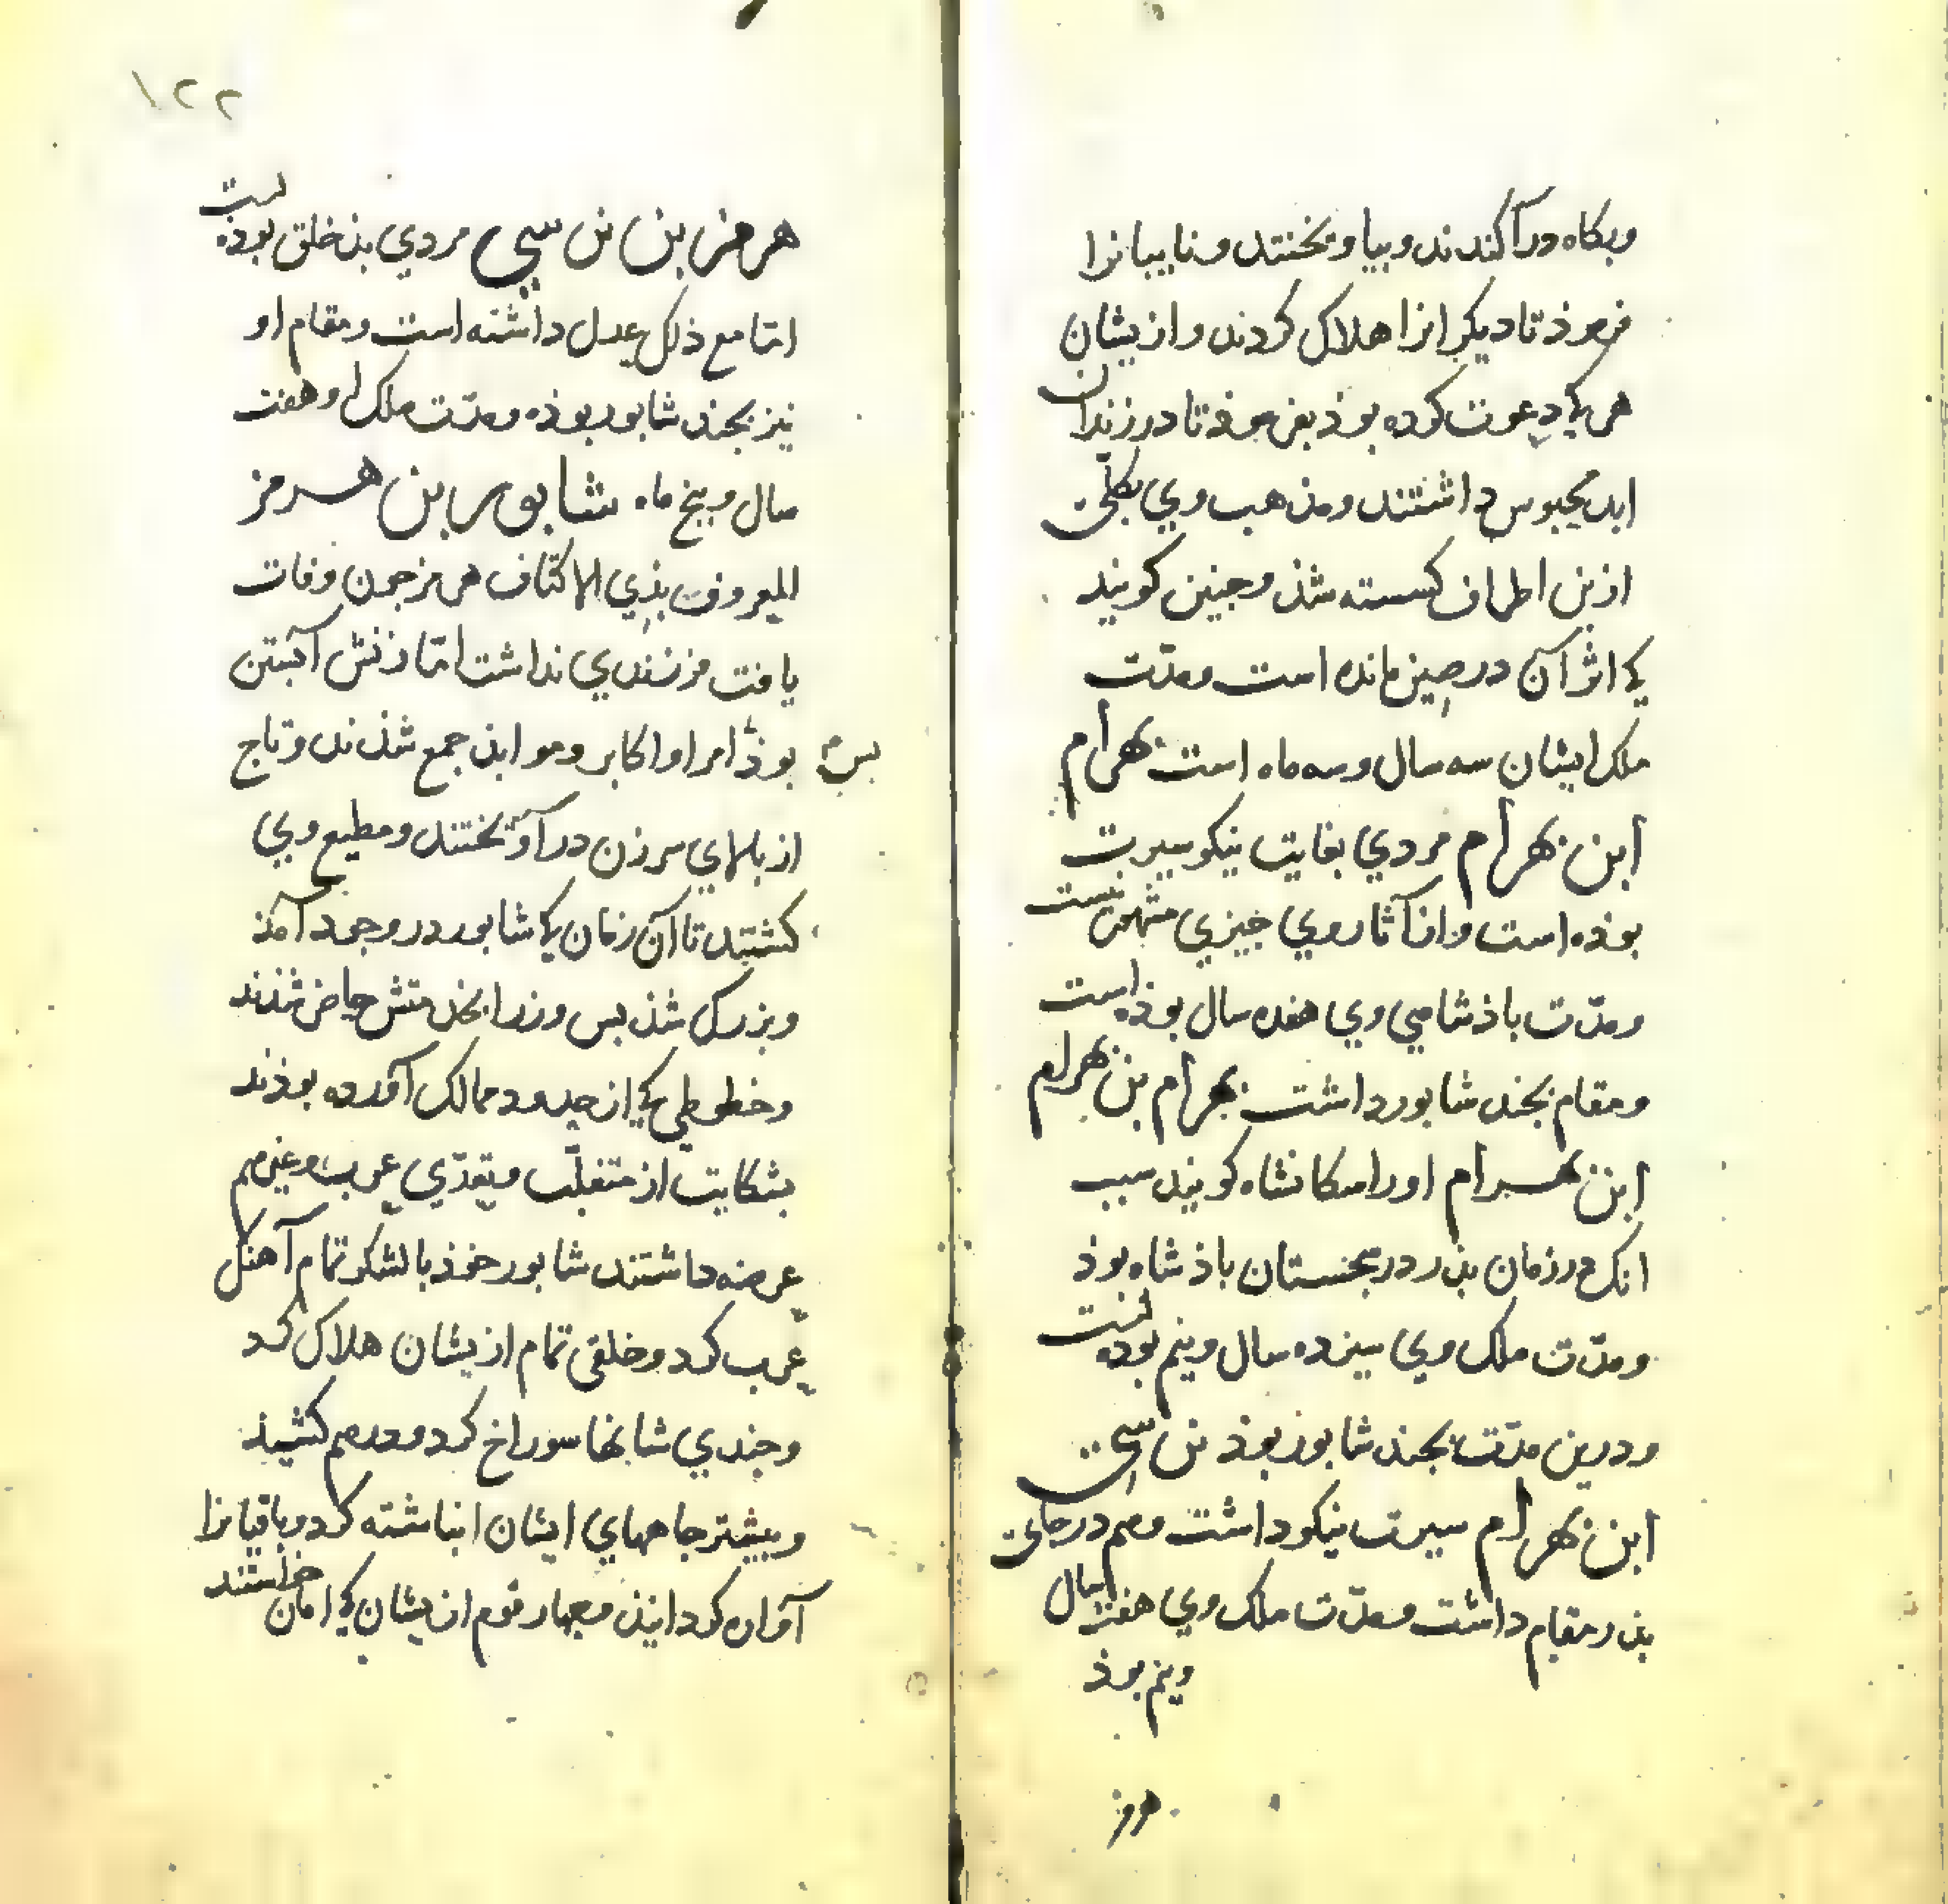 وبكاه درآكندند وبياويختند ونايبانرا
فرموذ تا ديكرانرا هلاك كردند وازيشان
هركي دعوت كرده بوذ بفرموذ تا در زندان
ابد محبوس داشتند ومذهب وي بكلّي
ازين اطراف كسسته شذ وجنين كويند
كي اثر آن در صين مانده است ومدّت
ملك ايشان سه سال وسه ماه است بهرام
ابن بهرام مردي بغايت نيكو سيرت
بوذه است واز آثار وي جيزي مشهور نيست
ومدّت باذشاهي وي هفده سال بوذه است
ومقام بجند شابور داشت بهرام بن بهرام
ابن بهرام اورا سكانشاه كويند سبب
انك در زمان بذر در سجستان باذشاه بوذ
ومدّت ملك وي سيزده سال ونيم بوده است
ودرين مدّت بجند شابور بوذ نرسي
ابن بهرام سيرت نيكو داشت وهم در جاي
بذر مقام داشت ومدّت ملك وي هفت سال
ونيم بوذ
هرمز
١٢٢
هرمز بن نرسي مردي بذخلق بوذه است
امّا مع ذلك عدل داشته است ومقام او
نيز بجند شابور بوذه ومدّت ملك او هفت
سال وبنج ماه شابور بن هرمز
المعروف بذي الاكتاف هرمز جون وفات
يافت فرزندي نداشت امّا زنش آبستن
بوذ امرا واكابر وموابذ جمع شذند وتاج
بس
از بالاي سر زن درآويختند ومطيع وي
كشتند تا آن زمان كي شابور در وجود آمذ
وبزرك شذ بس وزرا بخدمتش حاضر شذند
وخطوطي كي از حدود ممالك آورده بوذند
بشكايت از متغلّب وتعدّي عرب وغيرهم
عرضه داشتند شابور خوذ با لشكر تمام آهنك
عرب كرد وخلقي تمام ازيشان هلاك كرد
وجندي شانها سوراخ كرد ودرهم كشيذ
وبيشتر جاههاي ايشان انباشته كرد وباقيانرا
آواره كردانيذ وجهار قوم ازيشان كي امان خواستند